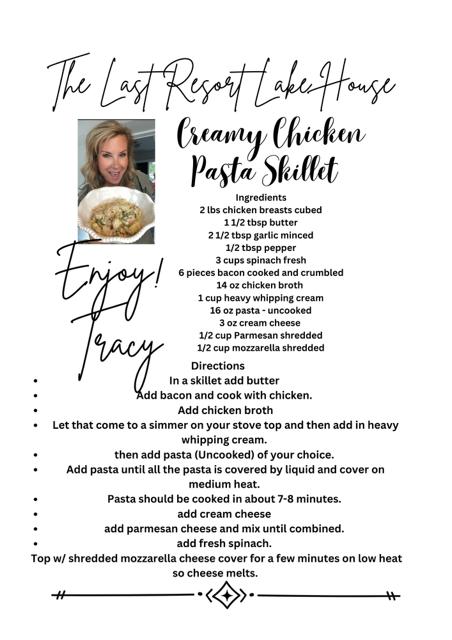 The Last Resort Lake House
Creamy Chicken
Pasta Skillet
Enjoy!
Tracy
Ingredients
2 lbs chicken breasts cubed
1 1/2 tbsp butter
2 1/2 tbsp garlic minced
1/2 tbsp pepper
3 cups spinach fresh
6 pieces bacon cooked and crumbled
14 oz chicken broth
1 cup heavy whipping cream
16 oz pasta - uncooked
3 oz cream cheese
1/2 cup Parmesan shredded
1/2 cup mozzarella shredded
Directions
• In a skillet add butter
• Add bacon and cook with chicken.
• Add chicken broth
• Let that come to a simmer on your stove top and then add in heavy
whipping cream.
• then add pasta (Uncooked) of your choice.
• Add pasta until all the pasta is covered by liquid and cover on
medium heat.
• Pasta should be cooked in about 7-8 minutes.
• add cream cheese
• add parmesan cheese and mix until combined.
• add fresh spinach.
Top w/ shredded mozzarella cheese cover for a few minutes on low heat
so cheese melts.